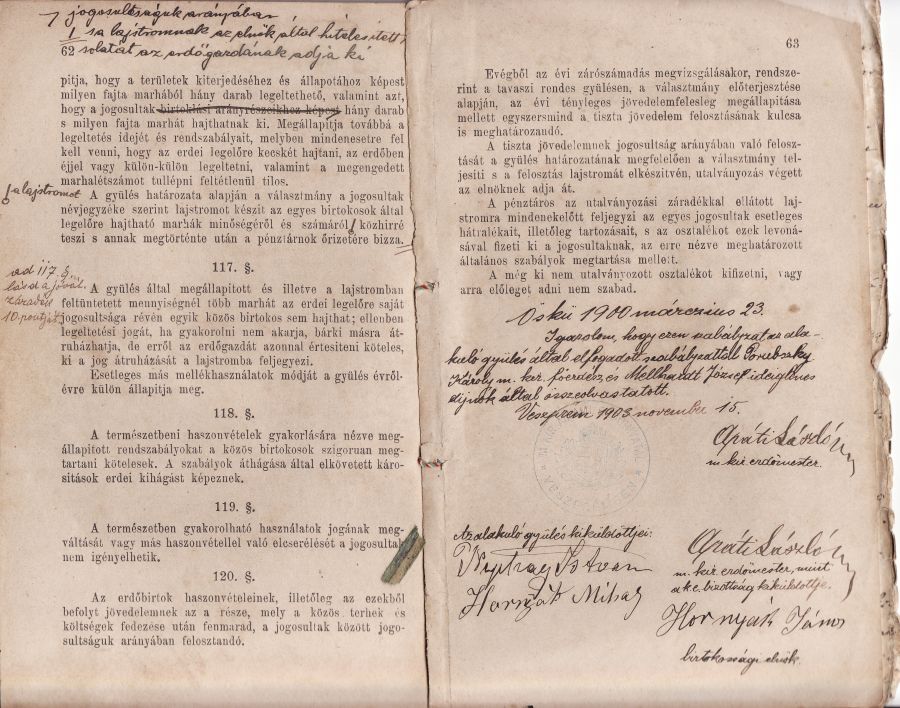 jogosultságuk arányában
1 sa lajstromnak az elnök által hitelesitett
62 solatát az erdőgazdának adja ki
pitja, hogy a területek kiterjedéséhez és állapotához képest
milyen fajta marhából hány darab legeltethető, valamint azt,
hogy a jogosultak birtoklási arányrészeikhez képest hány darab
s milyen fajta marhát hajthatnak ki. Megállapitja továbbá a
legeltetés idejét és rendszabályait, melyben mindenesetre fel
kell venni, hogy az erdei legelőre kecskét hajtani, az erdőben
éjjel vagy külön-külön legeltetni, valamint a megengedett
marhalétszámot tullépni feltétlenül tilos.
a lajstromot
A gyülés határozata alapján a választmány a jogosultak
névjegyzéke szerint lajstromot készit az egyes birtokosok által
legelőre hajtható marhák minőségéről és számáról, közhirré
teszi s annak megtörténte után a pénztárnok őrizetére bizza.
117. §.
ad 117. §.
lásd a jóváh.
záradék
10. pontját
A gyülés által megállapitott és illetve a lajstromban
feltüntetett mennyiségnél több marhát az erdei legelőre saját
jogosultsága révén egyik közös birtokos sem hajthat; ellenben
legeltetési jogát, ha gyakorolni nem akarja, bárki másra át-
ruházhatja, de erről az erdőgazdát azonnal értesiteni köteles,
ki a jog átruházását a lajstromba feljegyzi.
Esetleges más mellékhasználatok módját a gyülés évről-
évre külön állapitja meg.
118. §.
A természetbeni haszonvételek gyakorlására nézve meg-
állapitott rendszabályokat a közös birtokosok szigoruan meg-
tartani kötelesek. A szabályok áthágása által elkövetett káro-
sitások erdei kihágást képeznek.
119. §.
A természetben gyakorolható használatok jogának meg-
váltását vagy más haszonvétellel való elcserélését a jogosultak
nem igényelhetik.
120. §.
Az erdőbirtok haszonvételeinek, illetőleg az ezekből
befolyt jövedelemnek az a része, mely a közös terhek és
költségek fedezése után fenmarad, a jogosultak között jogo-
sultságuk arányában felosztandó.
63
Evégből az évi zárószámadás megvizsgálásakor, rendsze-
rint a tavaszi rendes gyülésen, a választmány előterjesztése
alapján, az évi tényleges jövedelemfelesleg megállapitása
mellett egyszersmind a tiszta jövedelem felosztásának kulcsa
is meghatározandó.
A tiszta jövedelemnek jogosultság arányában való felosz-
tását a gyülés határozatának megfelelően a választmány tel-
jesiti s a felosztás lajstromát elkészitvén, utalványozás végett
az elnöknek adja át.
A pénztáros az utalványozási záradékkal ellátott laj-
stromra mindenekelőtt feljegyzi az egyes jogosultak esetleges
hátralékait, illetőleg tartozásait, s az osztalékot ezek levoná-
sával fizeti ki a jogosultaknak, az erre nézve meghatározott
általános szabályok megtartása mellett.
A még ki nem utalványozott osztalékot kifizetni, vagy
arra előleget adni nem szabad.
Öskü 1900 márczius 23.
Igazolom, hogy ezen szabályzat az ala-
kuló gyülés által elfogadott szabályzattal
Károly m. kir. főerdész és Mellhardt József ideiglenes
dijnok által összeolvastatott.
Veszprém 1903 november 15.
Aráti László
m. kir. erdőmester.
Az alakuló gyülés kiküldöttjei:
Nyitray István
Hornyák Mihál
Aráti László
m. kir. erdőmester, mint
a k.e. bizottság kiküldöttje.
Hornyák János
birtokossági elnök.